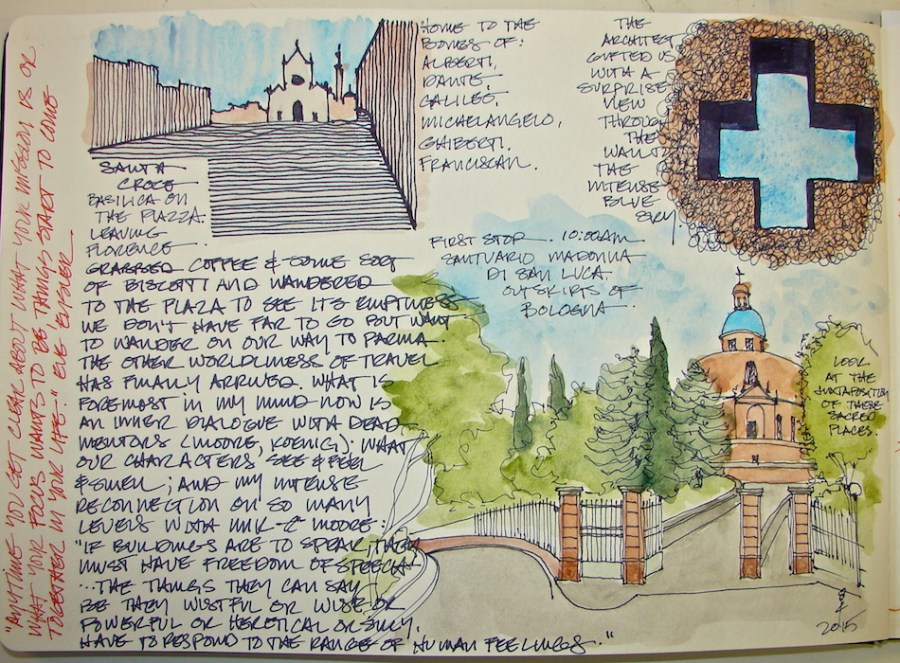 "ANYTIME YOU GET CLEAR ABOUT WHAT YOUR MISSION IS OR
WHAT YOUR FOCUS WANTS TO BE THINGS START TO COME
TOGETHER IN YOUR LIFE." EVE ENSLER
SANTA
CROCE
BASILICA ON
THE PIAZZA.
LEAVING
FLORENCE
GRABBED COFFEE & SOME SORT
OF BISCOTTI AND WANDERED
TO THE PLAZA TO SEE ITS EMPTINESS
WE DON'T HAVE FAR TO GO BUT WANT
TO WANDER ON OUR WAY TO PARMA.
THE OTHER WORLDLINESS OF TRAVEL
HAS FINALLY ARRIVED. WHAT IS
FOREMOST IN MY MIND NOW IS
AN INNER DIALOGUE WITH DEAD
MENTORS (MOORE, KOENIG): WHAT
OUR CHARACTERS SEE & FEEL
& SMELL; AND MY INTENSE
RECONNECTION ON SO MANY
LEVELS WITH MOORE:
"IF BUILDINGS ARE TO SPEAK, THEY
MUST HAVE FREEDOM OF SPEECH
...THE THINGS THEY CAN SAY
BE THEY WISTFUL OR WISE OR
POWERFUL OR HERETICAL OR SILLY.
HAVE TO RESPOND TO THE RANGE OF HUMAN FEELINGS."
HOME TO THE
BONES OF:
ALBERTI,
DANTE,
GALILEO,
MICHELANGELO,
GHIBERTI.
FRANCISCAN.
THE
ARCHITECT
GIFTED US
WITH A
SURPRISE
VIEW
THROUGH
THE
WALL:
THE
INTENSE
BLUE
SKY
FIRST STOP. 10:00AM
SANTUARIO MADONNA
DI SAN LUCA
OUTSKIRTS OF
BOLOGNA
LOOK
AT THE
JUXTAPOSITION
OF THESE
SACRED
PLACES.
2015